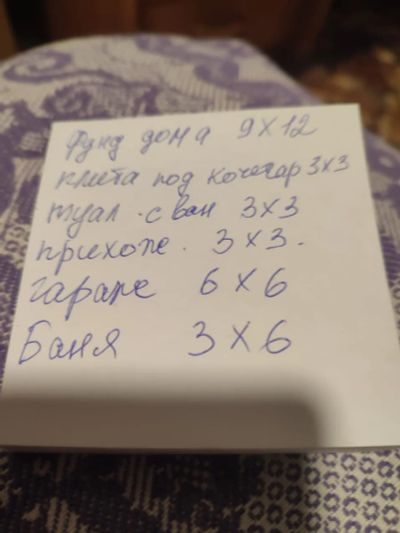 Фунд дома 9х12
плита под кочегар 3х3
туал. с ван 3х3
прихож. 3х3.
гараже 6х6
Баня 3х6